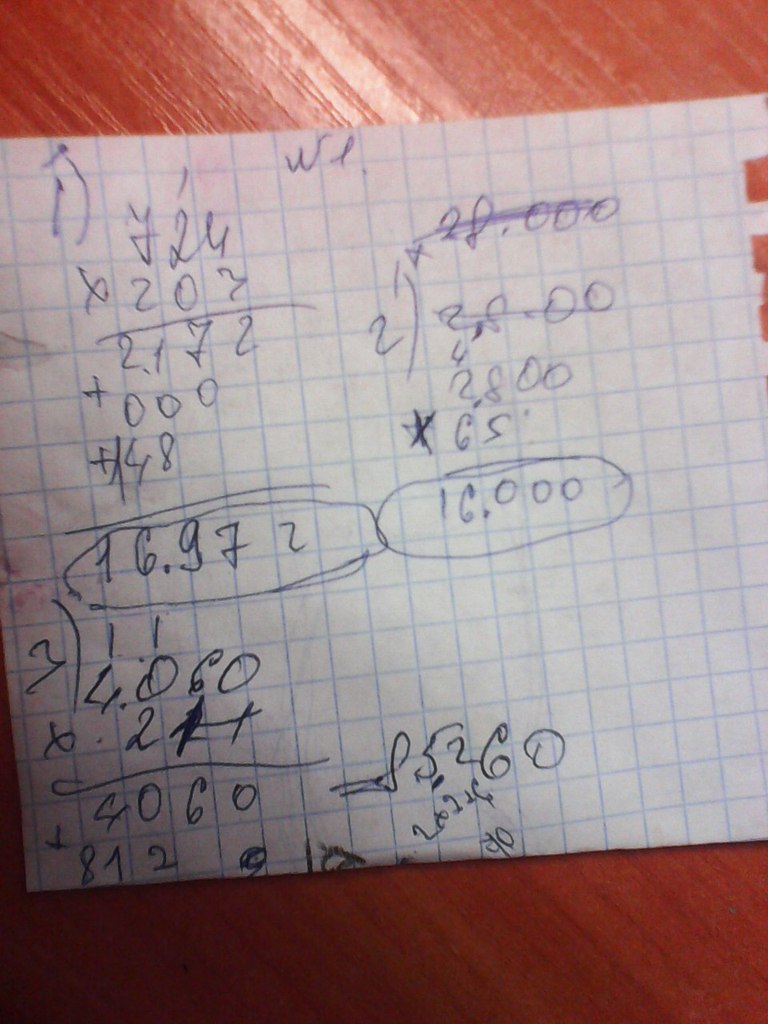 №1.
1)
1
724
x 203
2.172
+ 000
+ 148
16.972
28.000
2)
28.00
4
2.800
x 65
16.000
3)
1 1
4.060
x 21
4060
+ 812
= 85260